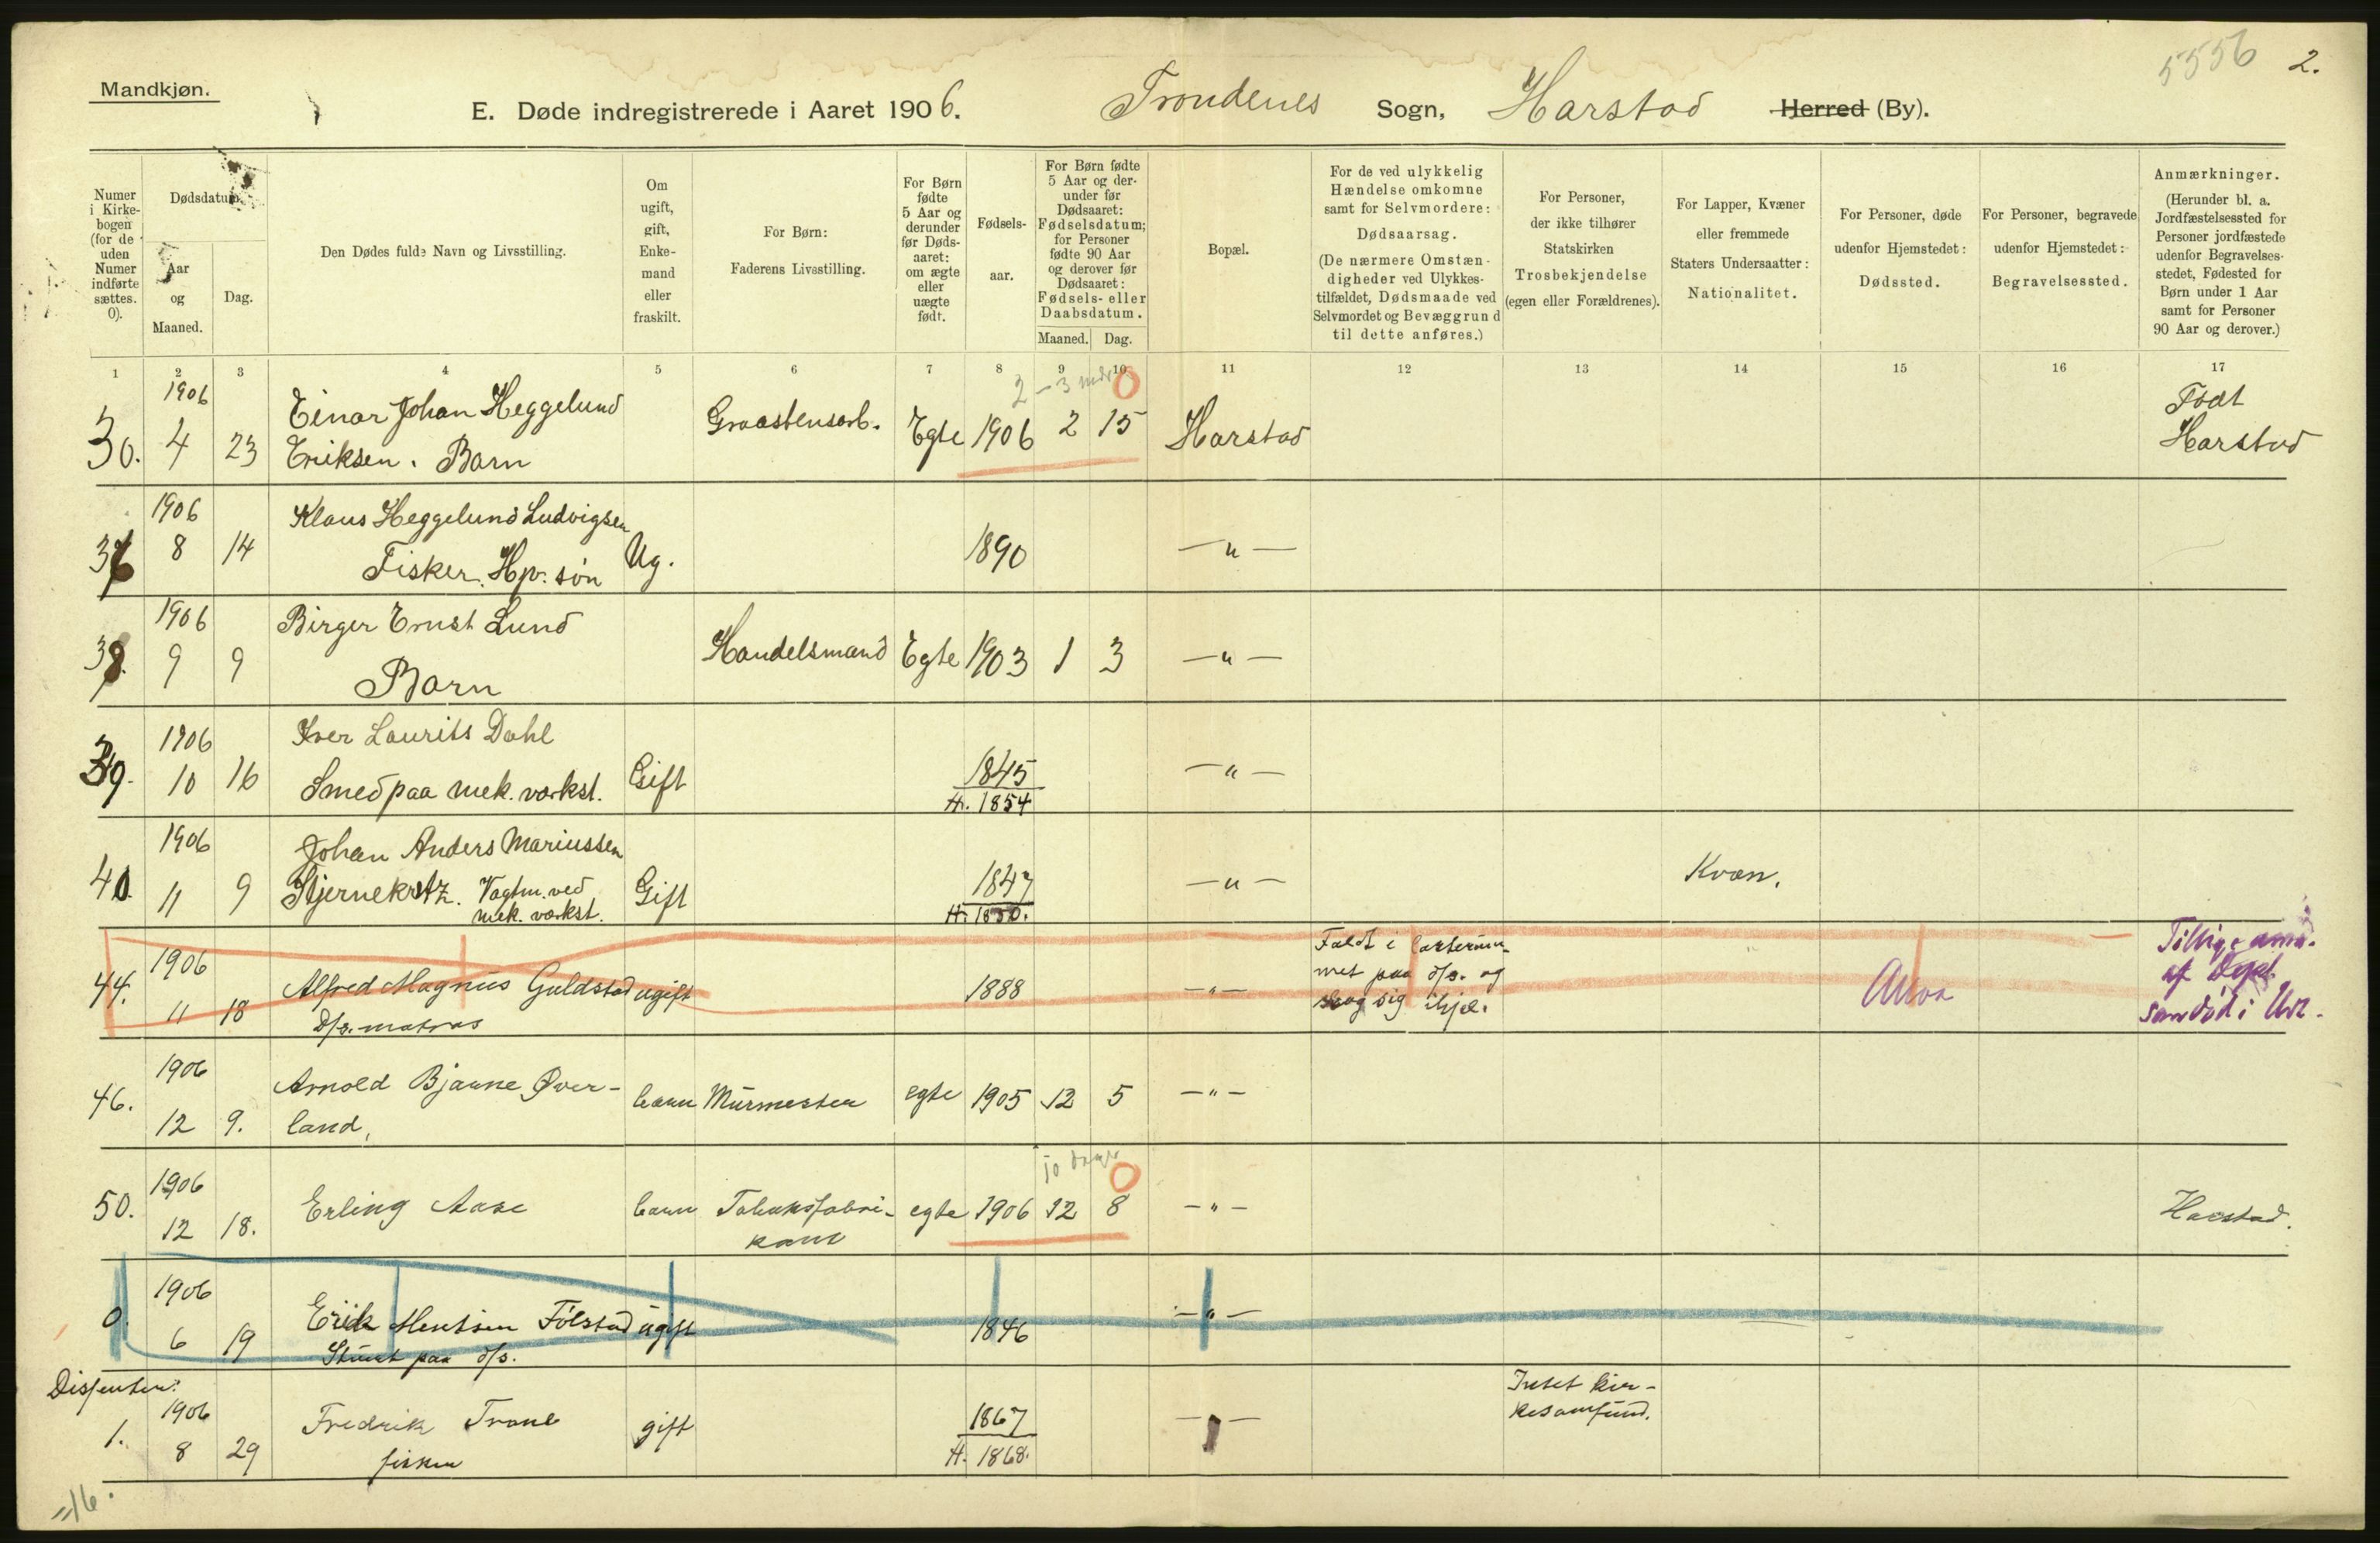 5556 2.
Mandkjøn.
E. Døde indregistrerede i Aaret 1906. Trondenes Sogn, Harstad Herred (By).
Numer i Kirke-bogen (for de uden Numer indførte sættes. 0).
Dødsdatum.
Aar og Maaned.
Dag.
Den Dødes fulde Navn og Livsstilling.
Om ugift, gift, Enke-mand eller fraskilt.
For Børn: Faderens Livsstilling.
For Børn fødte 5 Aar og derunder før Døds-aaret: om ægte eller uægte født.
Fødsels-aar.
For Børn fødte 5 Aar og der-under før Dødsaaret: Fødselsdatum; for Personer fødte 90 Aar og derover før Dødsaaret: Fødsels- eller Daabsdatum.
Maaned. Dag.
Bopæl.
For de ved ulykkelig Hændelse omkomne samt for Selvmordere: Dødsaarsag. (De nærmere Omstæn-digheder ved Ulykkes-tilfældet, Dødsmaade ved Selvmordet og Bevæggrund til dette anføres.)
For Personer, der ikke tilhører Statskirken Trosbekjendelse (egen eller Forældrenes).
For Lapper, Kvæner eller fremmede Staters Undersaatter: Nationalitet.
For Personer, døde udenfor Hjemstedet: Dødssted.
For Personer, begravede udenfor Hjemstedet: Begravelsessted.
Anmærkninger. (Herunder bl. a. Jordfæstelsessted for Personer jordfæstede udenfor Begravelses-stedet, Fødested for Børn under 1 Aar samt for Personer 90 Aar og derover.)
1 2 3 4 5 6 7 8 9 10 11 12 13 14 15 16 17
2-3 mdr 0
30. 1906 4 23 Einar Johan Heggelund Eriksen. Barn Graastensarb. Egte 1906 2 15 Harstad Født Harstad
36 1906 8 14 Klaus Heggelund Ludvigsen Fisker. Hp. søn Ug. 1890 -"-
38. 1906 9 9 Birger Ernst Lund Barn Handelsmand Egte 1903 1 3 -"-
39. 1906 10 16 Iver Laurits Dahl Smed paa mek. værkst. Gift 1845 H. 1854 -"-
40. 1906 11 9 Johan Anders Mariussen Stjernekratz. Vagtm. ved mek. værkst. Gift 1847 H. 1850. -"- Kvæn.
44. 1906 11 18 Alfred Magnus Guldstad D/s. matros ugift 1888 -"- Faldt i lasterum-met paa d/s. og slog sig ihjel. af som død i
46. 1906 12 9. Arnold Bjarne Øver-land, barn Murmester egte 1905 12 5 -"-
10 dage 0
50. 1906 12 18. Erling Aase barn Tobaksfabri-kant egte 1906 12 8 -"- Harstad.
0. 1906 6 19 Erik Følstad Stuert paa d/s. ugift 1846 -"-
Dissenter:
1. 1906 8 29 Fredrik Trane fisker gift 1867 H. 1868. Intet kir-kesamfund.
=16.